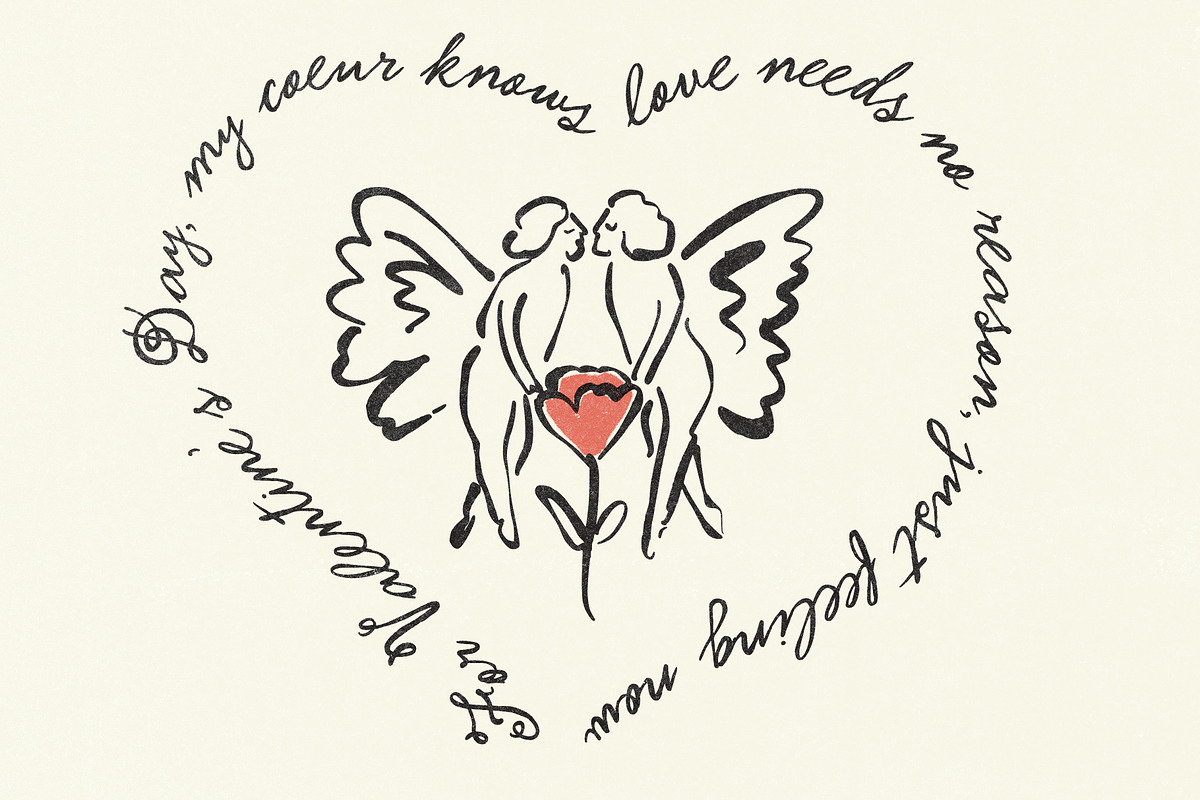 For Valentine's Day, my coeur knows love needs no reason, just feeling now